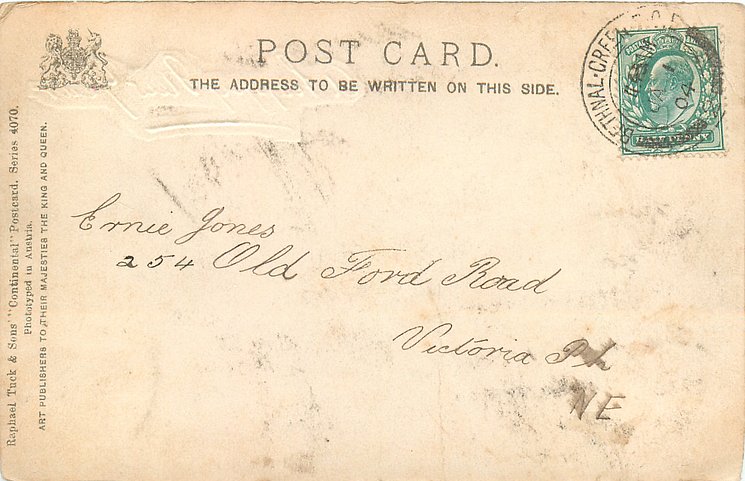 POST CARD.
THE ADDRESS TO BE WRITTEN ON THIS SIDE.
BETHNAL-GREEN
04
HALFPENNY
Raphael Tuck & Sons' "Continental" Postcard. Series 4070.
Phototyped in Austria.
ART PUBLISHERS TO THEIR MAJESTIES THE KING AND QUEEN.
Ernie Jones
254 Old Ford Road
Victoria Pk
NE